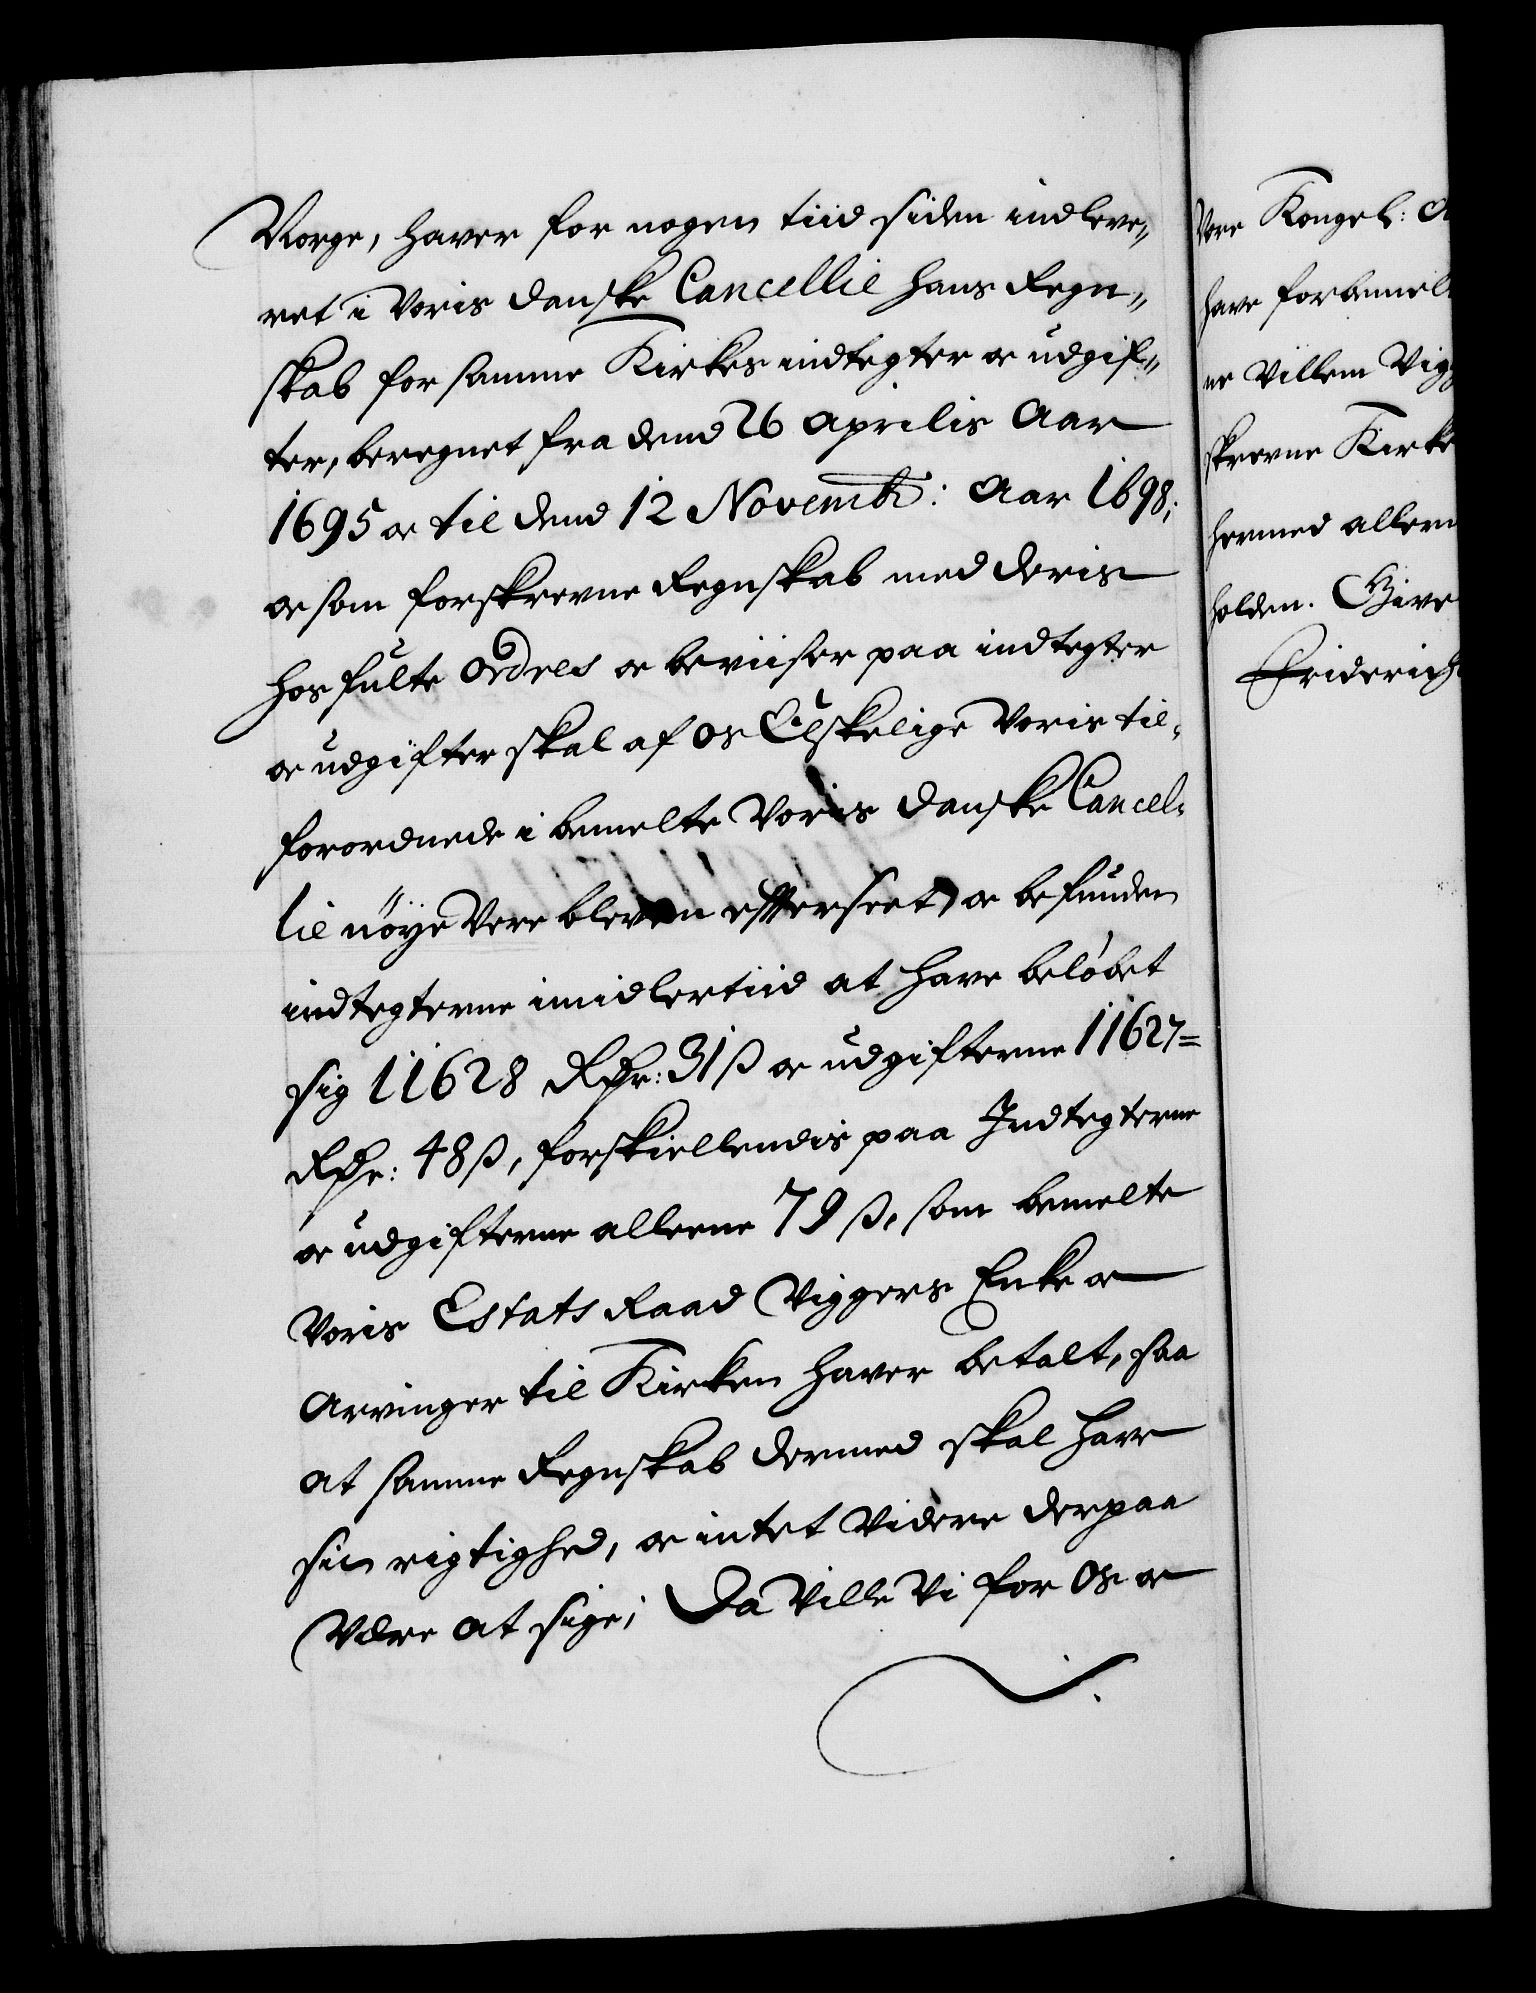 Norge, haver for nogen tiid siden indleve„
ret i Voris danske Cancellie hans Regn„
skab for samme Kirkes indtegter oc udgif„
ter, beregnet fra dend 26 Aprilis Aar
1695 oc til dend 12 Novemb: Aar 1698;
oc som forskrevne Regnskab med deris
hosfulte ordres oc beviiser paa indtegter
oc udgifter skal af os Elskelige Voris til„
forordnede i bemelte Voris danske Cancel„
lie nöye Vere bleven efterseet, oc befunden
indtegterne imidlertiid at have belöbet
sig 11628 Rdr: 31 ß oc udgifterne 11627=
Rdr: 48 ß, forskiellendis paa Indtegterne
oc udgifterne alleene 79 ß, som bemelte
Voris Estats Raad Viggers Enke oc
Arvinger til Kirken haver betalt, saa
at samme Regnskab dermed skal have
sin rigtighed, oc intet Videre derpaa
Være at sige; Da Ville Vi for Os oc
Vore Kongel: A
have forbemel
ne Villem Vig
skrevne Kirke
hermed allern
holden. Give
Friderich